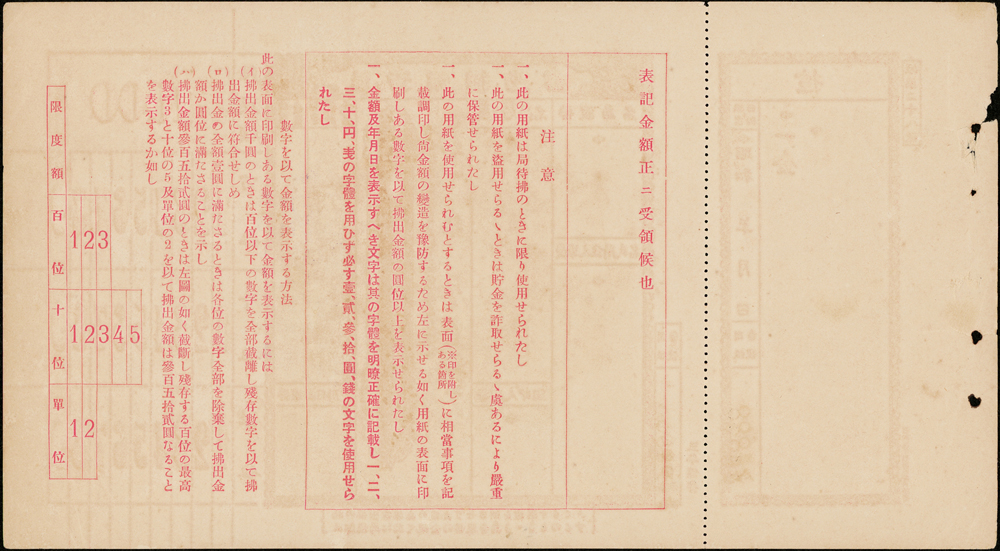 表記金額正ニ受領候也
注意
一、此の用紙は局待拂のときに限り使用せられたし
一、此の用紙を盗用せらるゝときは貯金を詐取せらるゝ虞あるにより嚴重
に保管せられたし
一、此の用紙を使用せられむとするときは表面(※印を附しある箇所)に相當事項を記
載調印し尙金額の變造を豫防するため左に示せる如く用紙の表面に印
刷しある數字を以て拂出金額の圓位以上を表示せられたし
一、金額及年月日を表示すべき文字は其の字體を明瞭正確に記載し一、二、
三、十、円、戔の字體を用ひず必す壹、貳、參、拾、圓、錢の文字を使用せら
れたし
數字を以て金額を表示する方法
此の表面に印刷しある數字を以て金額を表示するには
(イ)拂出金額千圓のときは百位以下の數字を全部截離し殘存數字を以て拂
出金額に符合せしめ
(ロ)拂出金の全額壹圓に滿たさるときは各位の數字全部を除棄して拂出金
額か圓位に滿たさることを示し
(ハ)拂出金額參百五拾貳圓のときは左圖の如く截斷し殘存する百位の最高
數字3と十位の5及單位の2を以て拂出金額は參百五拾貳圓なること
を表示するか如し
限度額
百位 123
十位 12345
單位 12